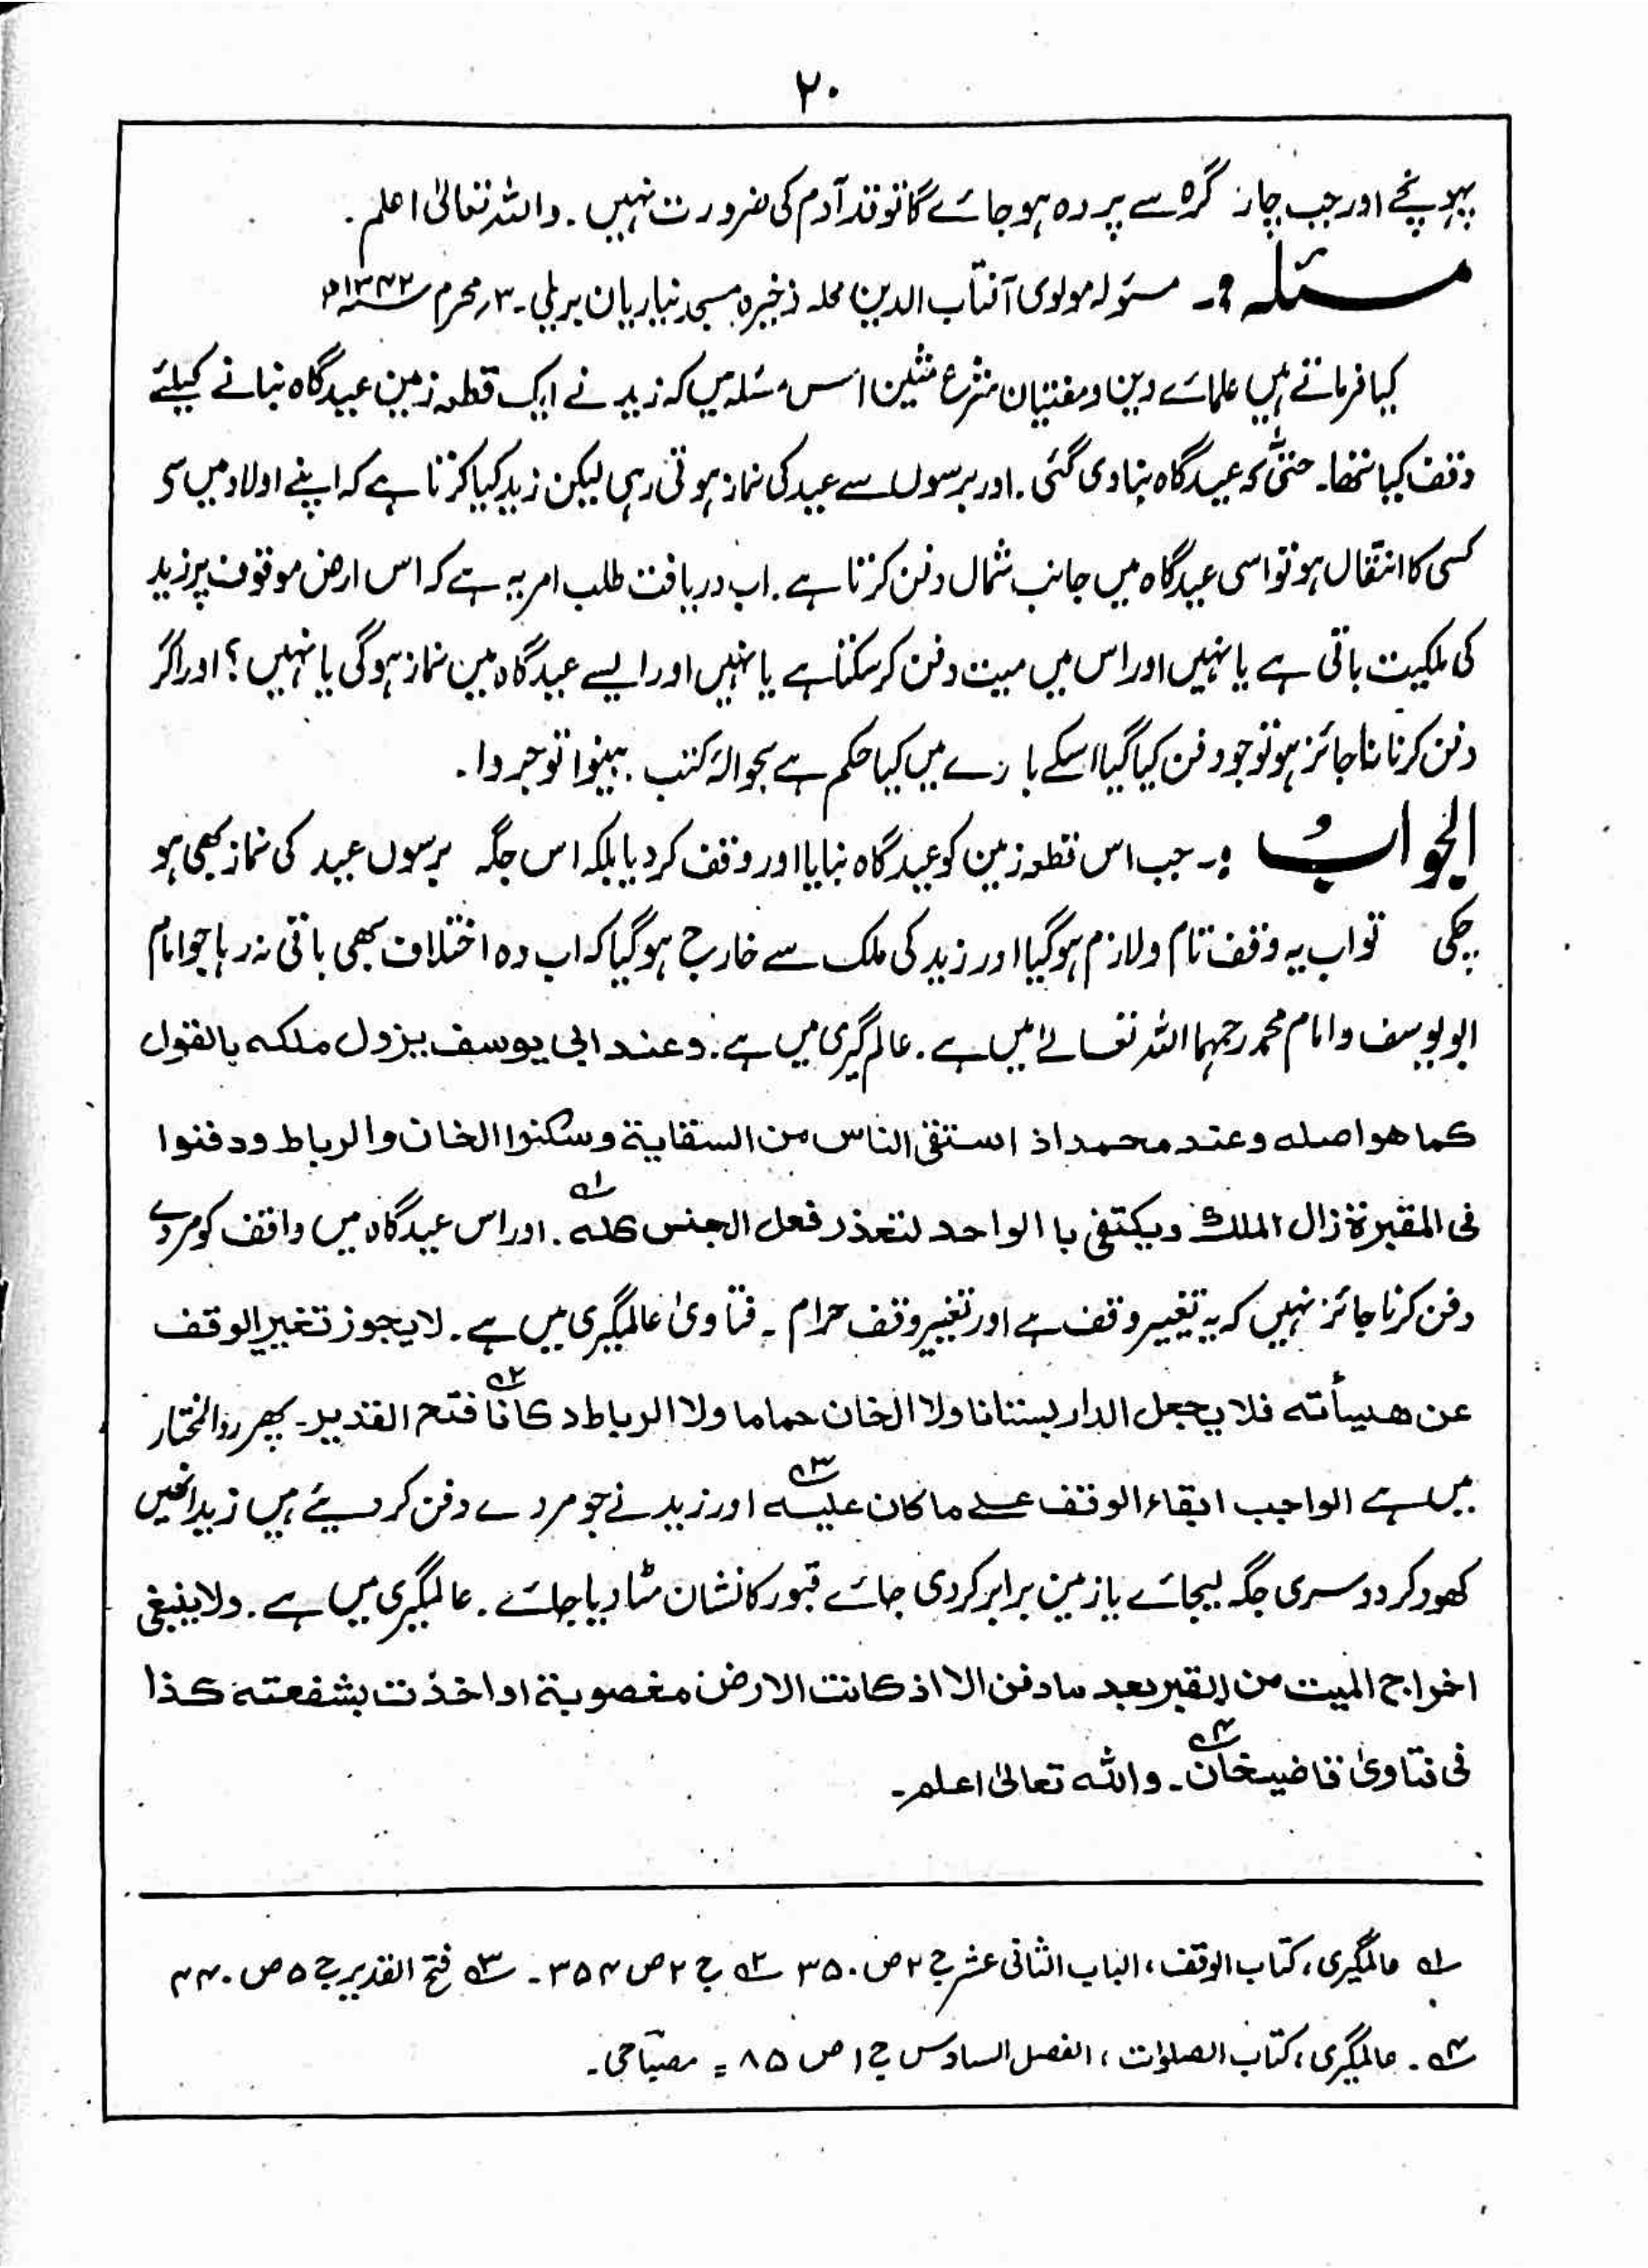 ۲۰
پہونچے اور جب چار گرہ سے پردہ ہو جائے گا تو قد آدم کی ضرورت نہیں ۔ واللہ تعالیٰ اعلم ۔
مسئلہ :۔ مسئولہ مولوی آفتاب الدین محلہ ذخیرہ مسجد نیاریان بریلی ۔ ۳؍ محرم ۱۳۴۲ھ
کیا فرماتے ہیں علمائے دین و مفتیان شرع متین اس مسئلہ میں کہ زید نے ایک قطعہ زمین عیدگاہ بنانے کیلئے
وقف کیا تھا۔ حتیّٰ کہ عیدگاہ بنا دی گئی ۔ اور برسوں سے عید کی نماز ہوتی رہی لیکن زید کیا کرتا ہے کہ اپنے اولاد میں سی
کسی کا انتقال ہو تو اسی عیدگاہ میں جانب شمال دفن کرتا ہے ۔ اب دریافت طلب امر یہ ہے کہ اس ارض موقوف پر زید
کی ملکیت باقی ہے یا نہیں اور اس میں میت دفن کر سکتا ہے یا نہیں اور ایسے عیدگاہ میں نماز ہوگی یا نہیں ؟ اور اگر
دفن کرنا ناجائز ہو تو جو دفن کیا گیا اسکے بارے میں کیا حکم ہے بحوالۂ کتب ۔ بینوا توجروا ۔
الجواب :۔ جب اس قطعہ زمین کو عیدگاہ بنایا اور وقف کر دیا بلکہ اس جگہ برسوں عید کی نماز بھی ہو
چکی تو اب یہ وقف تام و لازم ہو گیا اور زید کی ملک سے خارج ہو گیا کہ اب وہ اختلاف بھی باقی نہ رہا جو امام
ابو یوسف و امام محمد رحمہما اللہ تعالےٰ میں ہے ۔ عالمگیری میں ہے : وعند ابی یوسف یزول ملکہ بالقول
کما ھو اصلہ وعند محمد اذ استقی الناس من السقایۃ وسکنوا الخان والرباط ودفنوا
فی المقبرۃ زال الملک ویکتفی با الواحد لتعذر فعل الجنس کلہ ؎۱ . اور اس عیدگاہ میں واقف کو مردے
دفن کرنا جائز نہیں کہ یہ تغییر وقف ہے اور تغییر وقف حرام ۔ فتاویٰ عالمگیری میں ہے ۔ لا یجوز تغییر الوقف
عن ھیأتہ فلا یجعل الدار بستانا ولا الخان حماما ولا الرباط دکانا ؎۲ فتح القدیر۔ پھر ردالمختار
میں ہے الواجب ابقاء الوقف علے ما کان علیہ ؎۳ اور زید نے جو مردے دفن کر دیئے ہیں زید انھیں
کھود کر دوسری جگہ لیجائے یا زمین برابر کر دی جائے قبور کا نشان مٹا دیا جائے ۔ عالمگیری میں ہے ۔ ولا ینبغی
اخراج المیت من القبر بعد ما دفن الا اذ کانت الارض مغصوبۃ او اخذت بشفعتہ کذا
فی فتاویٰ قاضیخان ؎۴ ۔ واللہ تعالیٰ اعلم ۔
؎۱ عالمگیری، کتاب الوقف، الباب الثانی عشر ج ۲ ص ۳۵۰ ؎۲ ج ۲ ص ۳۵۴ ۔ ؎۳ فتح القدیر ج ۵ ص ۴۴۰
؎۴ ۔ عالمگیری، کتاب الصلوات، الفصل السادس ج ۱ ص ۸۵ = مصباحی ۔